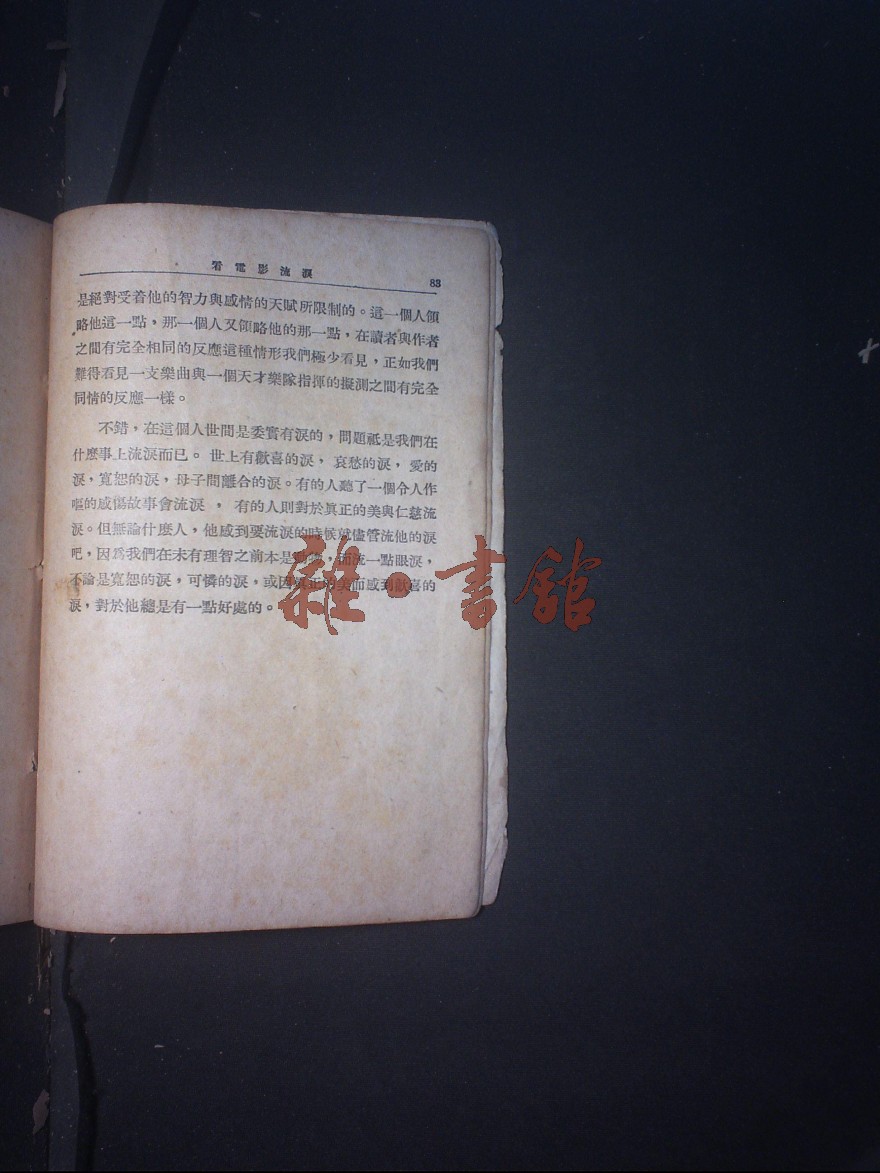 看電影流淚 83
是絕對受着他的智力與感情的天賦所限制的。這一個人領
略他這一點,那一個人又領略他的那一點,在讀者與作者
之間有完全相同的反應這種情形我們極少看見,正如我們
難得看見一支樂曲與一個天才樂隊指揮的擬測之間有完全
同情的反應一樣。
不錯,在這個人世間是委實有淚的,問題祗是我們在
什麼事上流淚而已。世上有歡喜的淚,哀愁的淚,愛的
淚,寬恕的淚,母子間離合的淚。有的人聽了一個令人作
嘔的感傷故事會流淚,有的人則對於眞正的美與仁慈流
淚。但無論什麼人,他感到要流淚的時候就儘管流他的淚
吧,因爲我們在未有理智之前本是動物,而流一點眼淚,
不論是寬恕的淚,可憐的淚,或因眞正的美而感到歡喜的
淚,對於他總是有一點好處的。
雜·書館